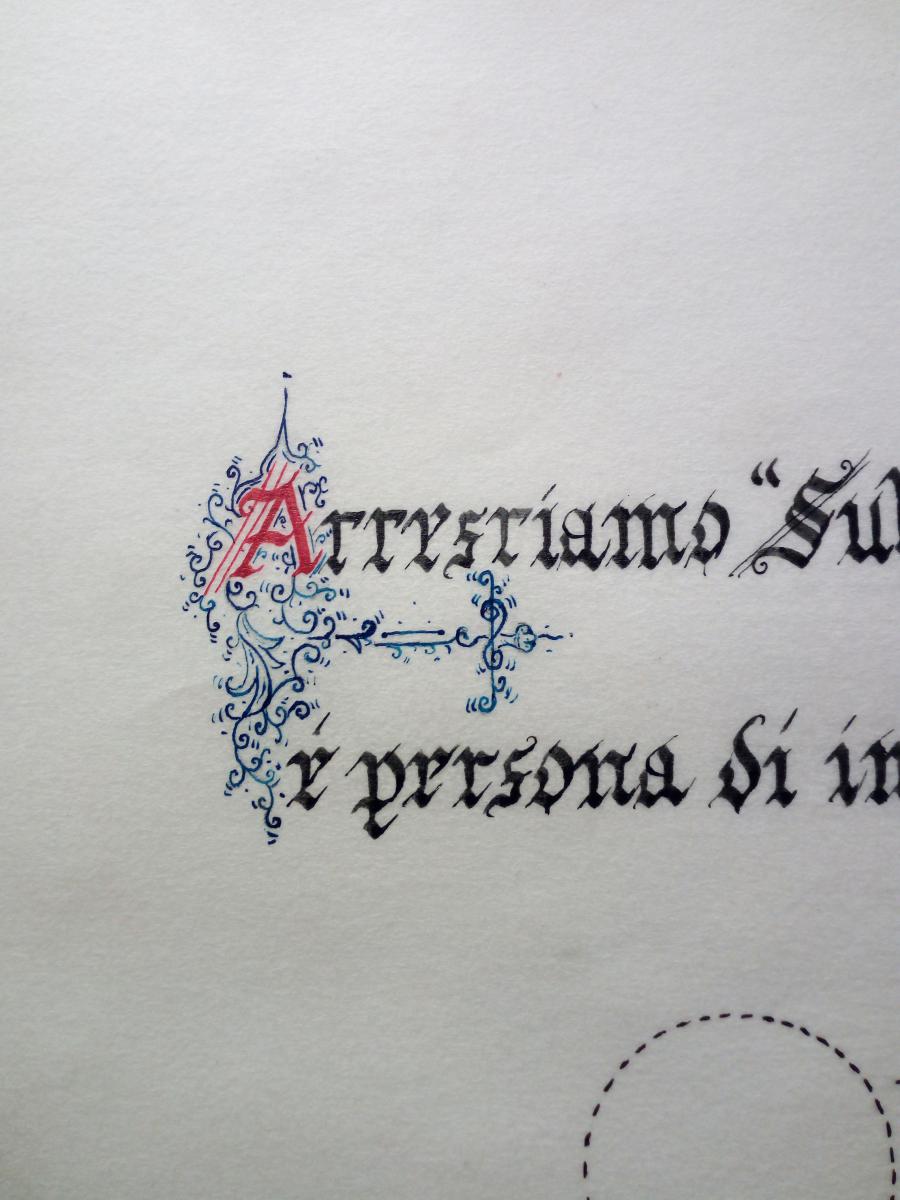 Attestiamo “Sul
è persona di in